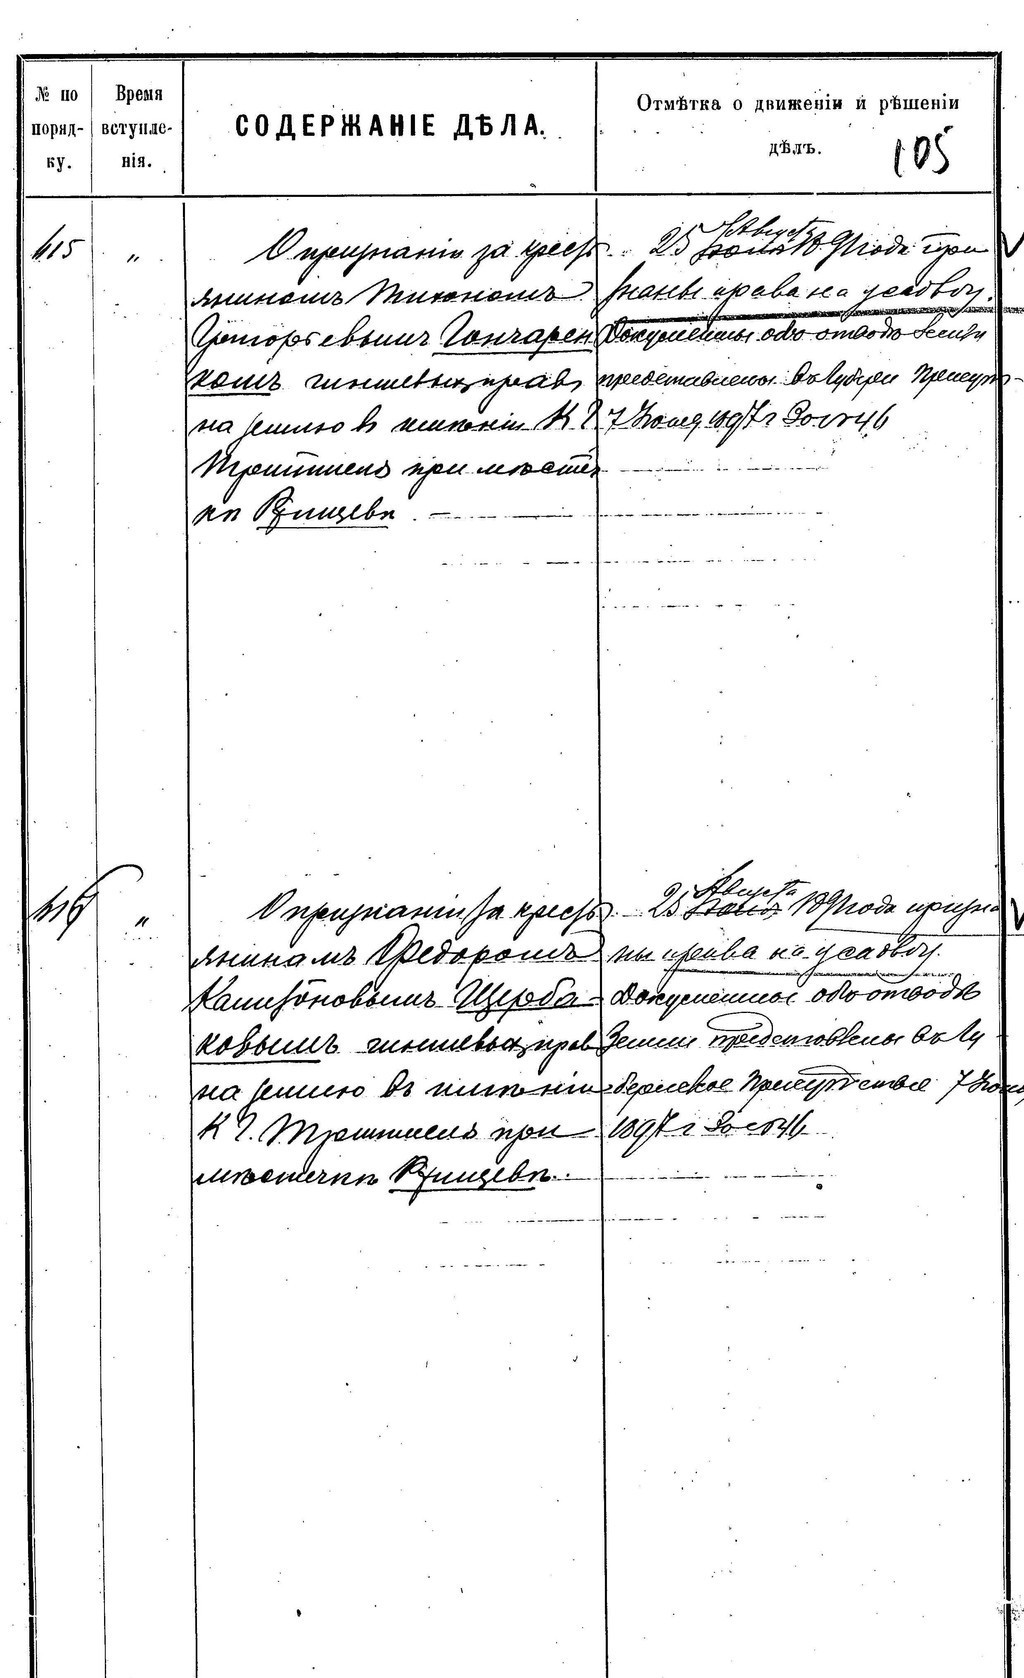 № по
поряд-
ку.
Время
вступле-
нія.
СОДЕРЖАНІЕ ДѢЛА.
Отмѣтка о движеніи и рѣшеніи
дѣлъ.
105
415
"
О признаніи за кресть
яниномъ Тихономъ
Григорьевымъ Гончарен
комъ чиншевыхъ правъ
на землю въ имѣніи К Г
при мѣстеч
кѣ Ржищевѣ
Августа
25 1891 года при
знаны права на усадьбу.
Документы объ отводѣ земли
представлены въ Губерн Присут-
7 1897 г За № 46
416
"
О признаніи за кресть
яниномъ Федоромъ
Щерба-
ковымъ чиншевыхъ правъ
на землю въ имѣніи
К Г. при
мѣстечкѣ Ржищевѣ.
Августа
25 1891 года призна
ны права на усадьбу.
Документы объ отводѣ
земли представлены въ Гу-
бернское Присутствіе 7
1897 г За № 46